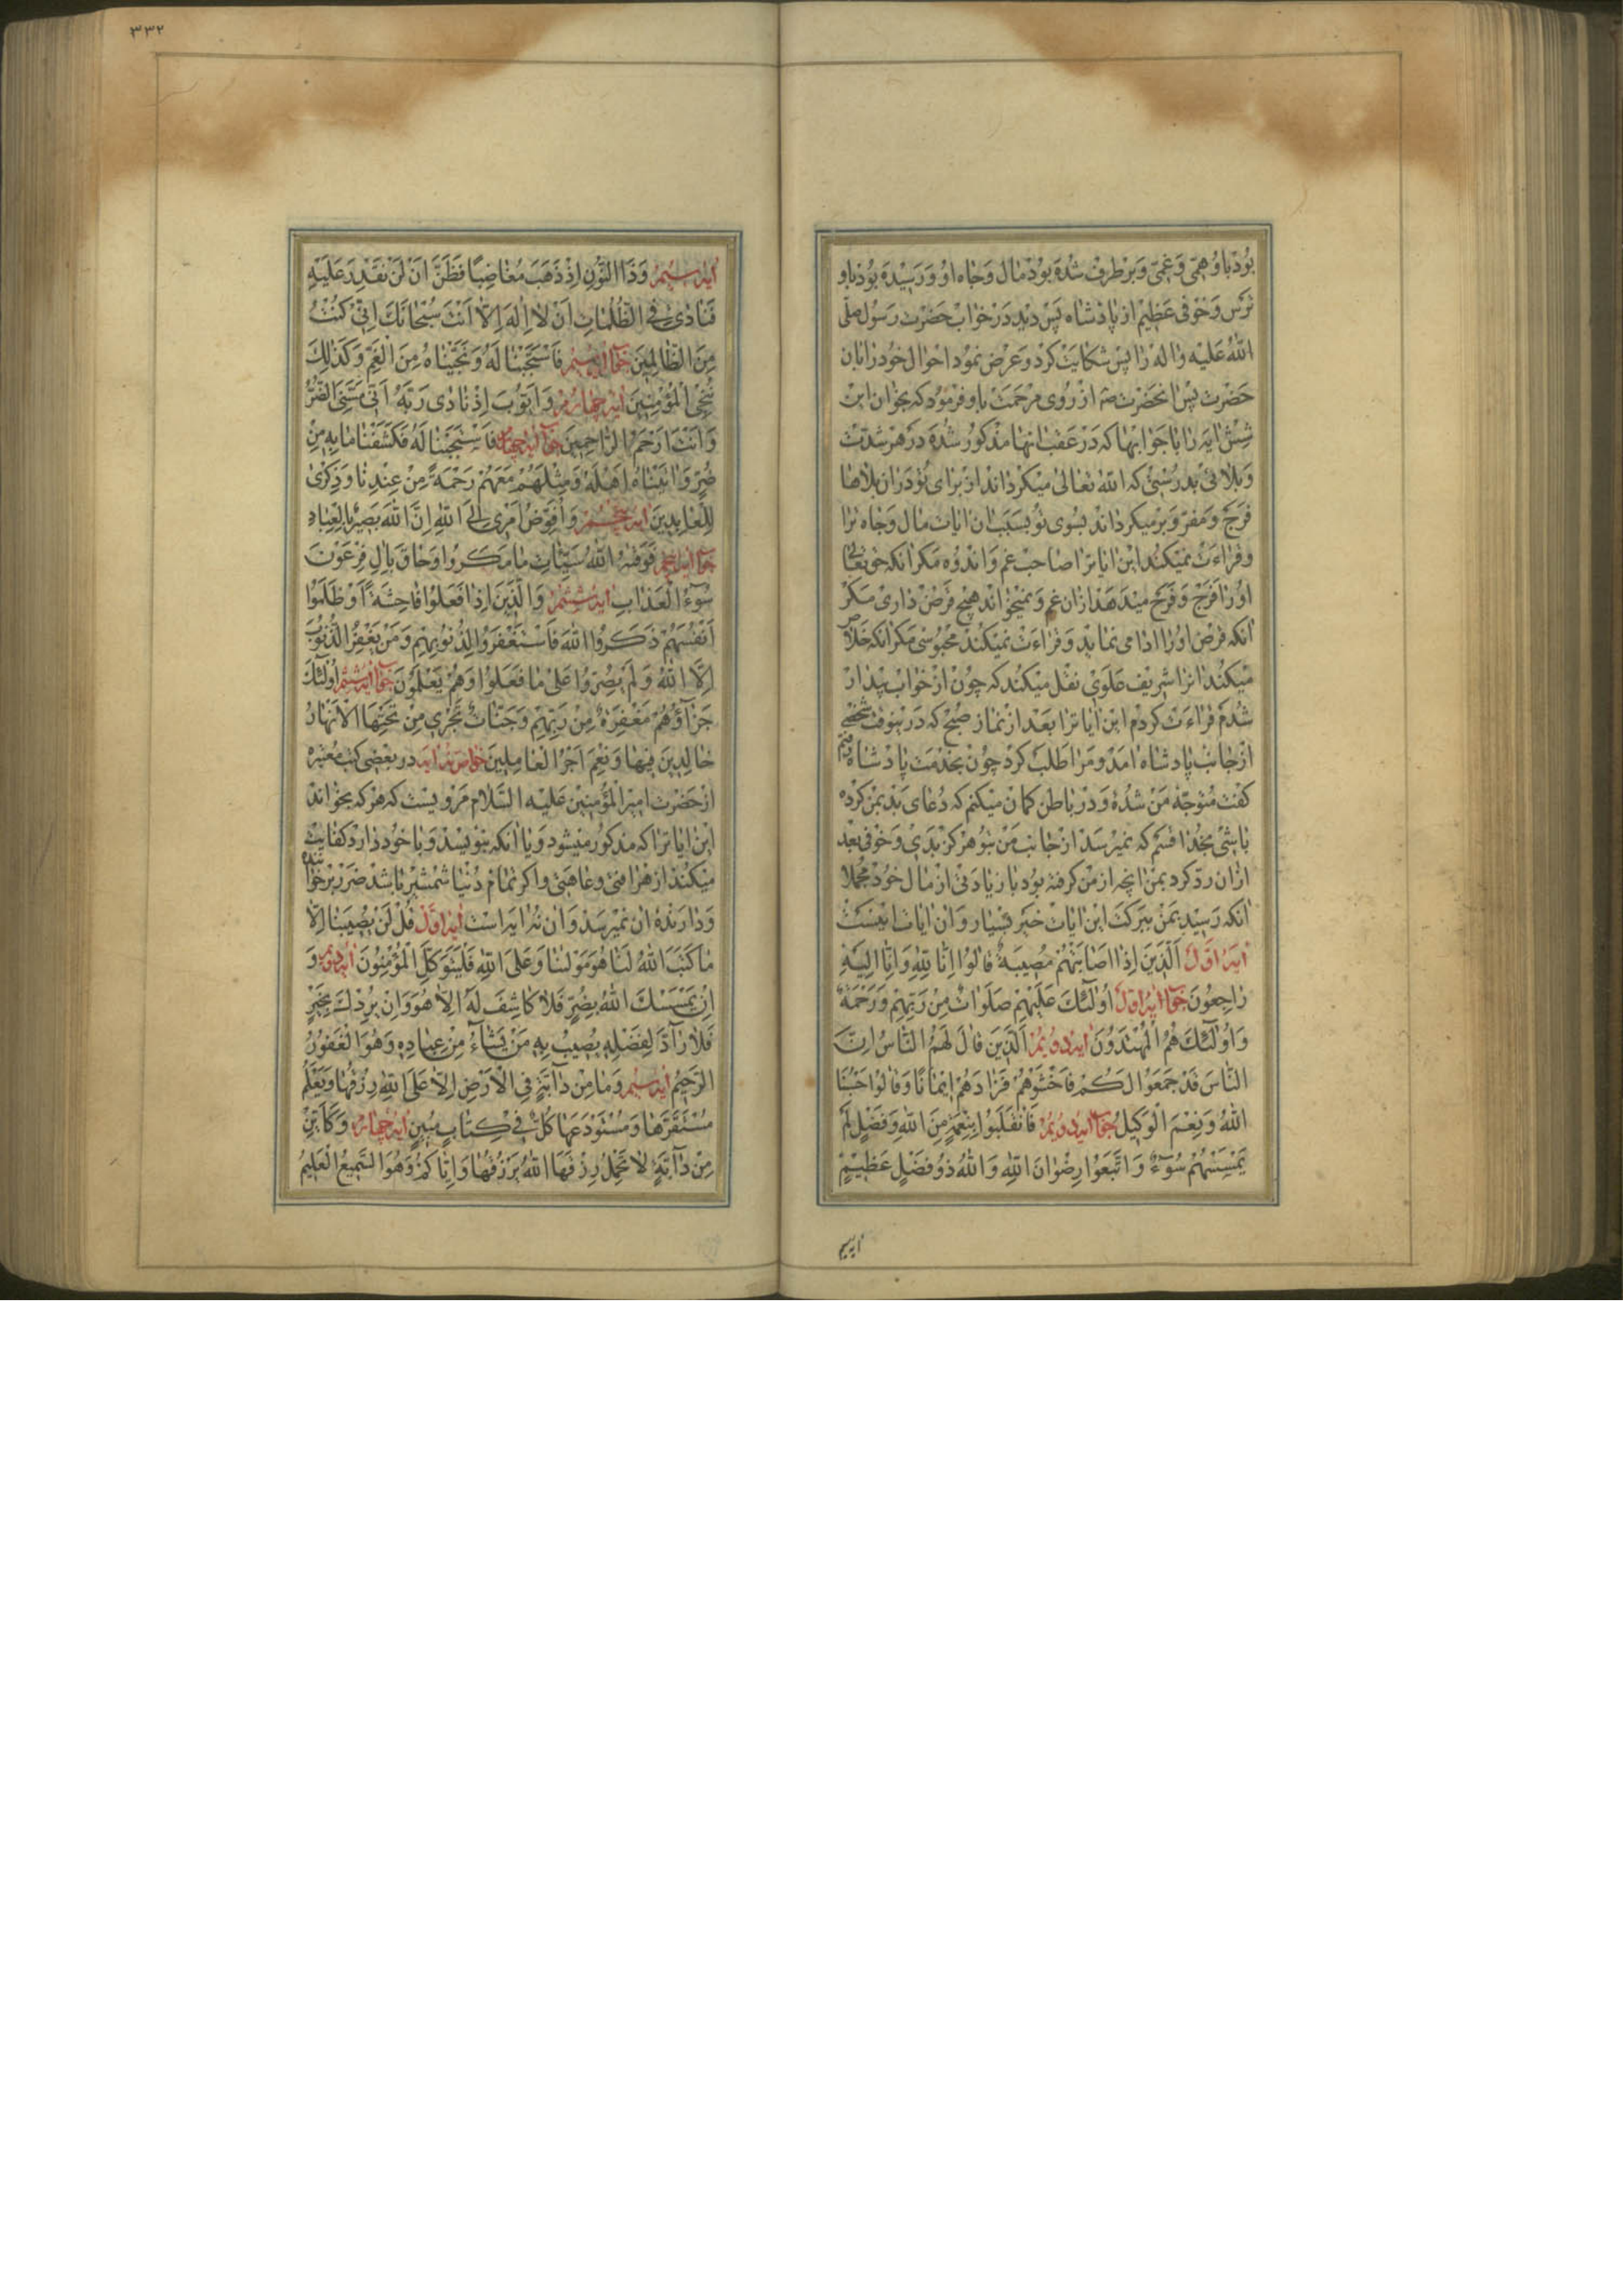 بود باو همی و غمی و برطرف شده بود مال و جاه او و رسیده بود باو
ترس و خوفی عظیم از پادشاه پس دید در خواب حضرت رسول صلی
الله علیه واله را پس شکایت کرد و عرض نمود احوال خود را بان
حضرت پس انحضرت از روی مرحمت باو فرمود که بخوان این
شش ایه را با جوابها که در عقب انها مذکور شده در هر شدت
و بلائی بدرستی که الله تعالی میکرداند از برای تو در ان بلاها
فرج و مفر و برمیکرداند بسوی تو بسبب ان ایات مال و جاه ترا
و قراءت نمیکند این ایاترا صاحب غم و اندوه مکر انکه حق تعالی
او را فرج و فرح میدهد ازان غم و نمیخواند هیچ قرض داری مکر
انکه قرض او را ادا می نماید و قراءت نمیکند محبوسی مکر انکه خلاص
میکند انرا شریف علوی نقل میکند که چون از خواب بیدار
شدم قراءت کردم این ایاترا بعد از نماز صبح که در نوقت شخصی
از جانب پادشاه امد و مرا طلب کرد چون بخدمت پادشاه رفتم
کفت متوجه من شده و در باطن کمان میکنم که دعای بد بمن کرده
باشی بخدا قسم که نمیرسد از جانب من بتو هرکز بدی و خوفی بعد
ازان رد کرد بمن انچه از من کرفته بود با زیادتی از مال خود مجملا
انکه رسید بمن ببرکت این ایات خیر بسیار و ان ایات اینست
ایه اول الذین اذا اصابتهم مصیبة قالوا انا لله وانا الیه
راجعون جواب ایه اول اولئک علیهم صلوات من ربهم ورحمة
واولئک هم المهتدون ایه دویم الذین قال لهم الناس ان
الناس قد جمعوا لکم فاخشوهم فزادهم ایمانا وقالوا حسبنا
الله ونعم الوکیل جواب ایه دویم فانقلبوا بنعمة من الله وفضل لم
یمسسهم سوء واتبعوا رضوان الله والله ذو فضل عظیم
ایه سیم
۳۳۲
ایه سیم وذا النون اذ ذهب مغاضبا فظن ان لن نقدر علیه
فنادی فی الظلمات ان لا اله الا انت سبحانک انی کنت
من الظالمین جواب ایه سیم فاستجبنا له ونجیناه من الغم وکذلک
ننجی المؤمنین ایه چهارم وایوب اذ نادی ربه انی مسنی الضر
وانت ارحم الراحمین جواب ایه چهارم فاستجبنا له فکشفنا ما به من
ضر واتیناه اهله ومثلهم معهم رحمة من عندنا وذکری
للعابدین ایه پنجم وافوض امری الی الله ان الله بصیر بالعباد
جواب ایه پنجم فوقیه الله سیئات ما مکروا وحاق بال فرعون
سوء العذاب ایه ششم والذین اذا فعلوا فاحشة او ظلموا
انفسهم ذکروا الله فاستغفروا لذنوبهم ومن یغفر الذنوب
الا الله ولم یصروا علی ما فعلوا وهم یعلمون جواب ایه ششم اولئک
جزاؤهم مغفرة من ربهم وجنات تجری من تحتها الانهار
خالدین فیها ونعم اجر العاملین خواص نه ایه در بعضی کتب معتبره
از حضرت امیرالمؤمنین علیه السلام مرویست که هرکه بخواند
این ایاترا که مذکور میشود و یا انکه بنویسد و با خود دارد کفایت
میکند از هر افتی و عاهتی و اکر تمام دنیا شمشیر باشد ضرر بر خواننده
و دارنده ان نمیرسد و ان نه ایه است ایه اول قل لن یصیبنا الا
ما کتب الله لنا هو مولینا وعلی الله فلیتوکل المؤمنون ایه دویم و
ان یمسسک الله بضر فلا کاشف له الا هو وان یردک بخیر
فلا راد لفضله یصیب به من یشاء من عباده وهو الغفور
الرحیم ایه سیم وما من دابة فی الارض الا علی الله رزقها ویعلم
مستقرها ومستودعها کل فی کتاب مبین ایه چهارم وکاین
من دابة لا تحمل رزقها الله یرزقها وایاکم وهو السمیع العلیم